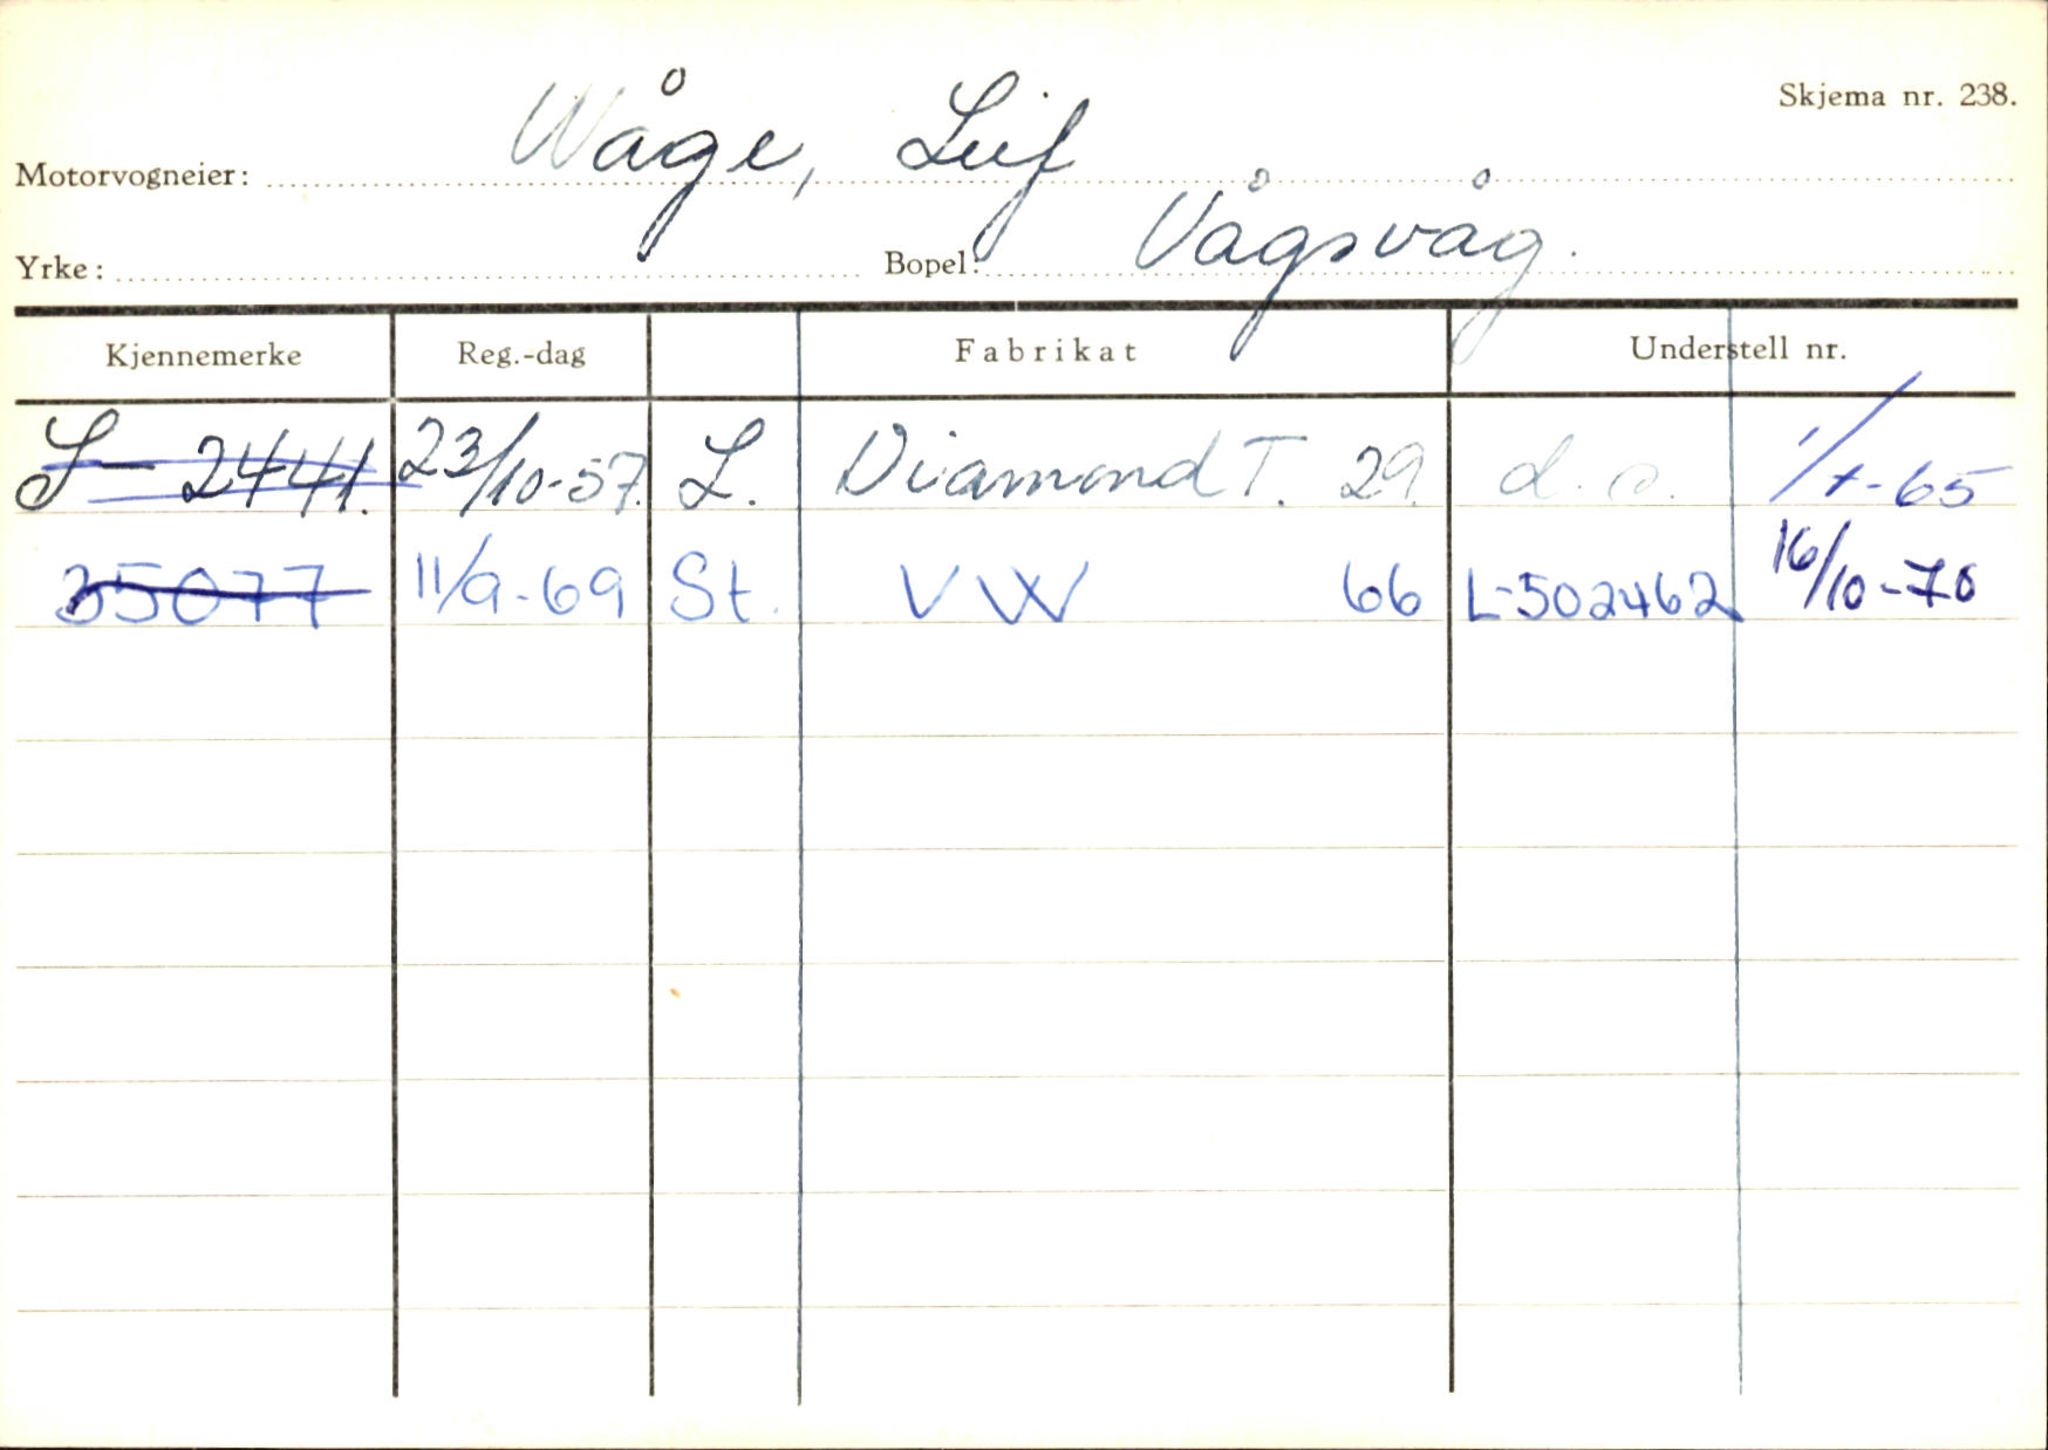 Skjema nr. 238.
Motorvogneier: Wåge, Leif
Yrke: Bopel: Vågsvåg.
Kjennemerke Reg.-dag Fabrikat Understell nr.
S-2441. 23/10-57. L. Diamond T. 29. d.o. 1/-65
35077 11/9-69 St. VW 66 L-502462 16/10-70